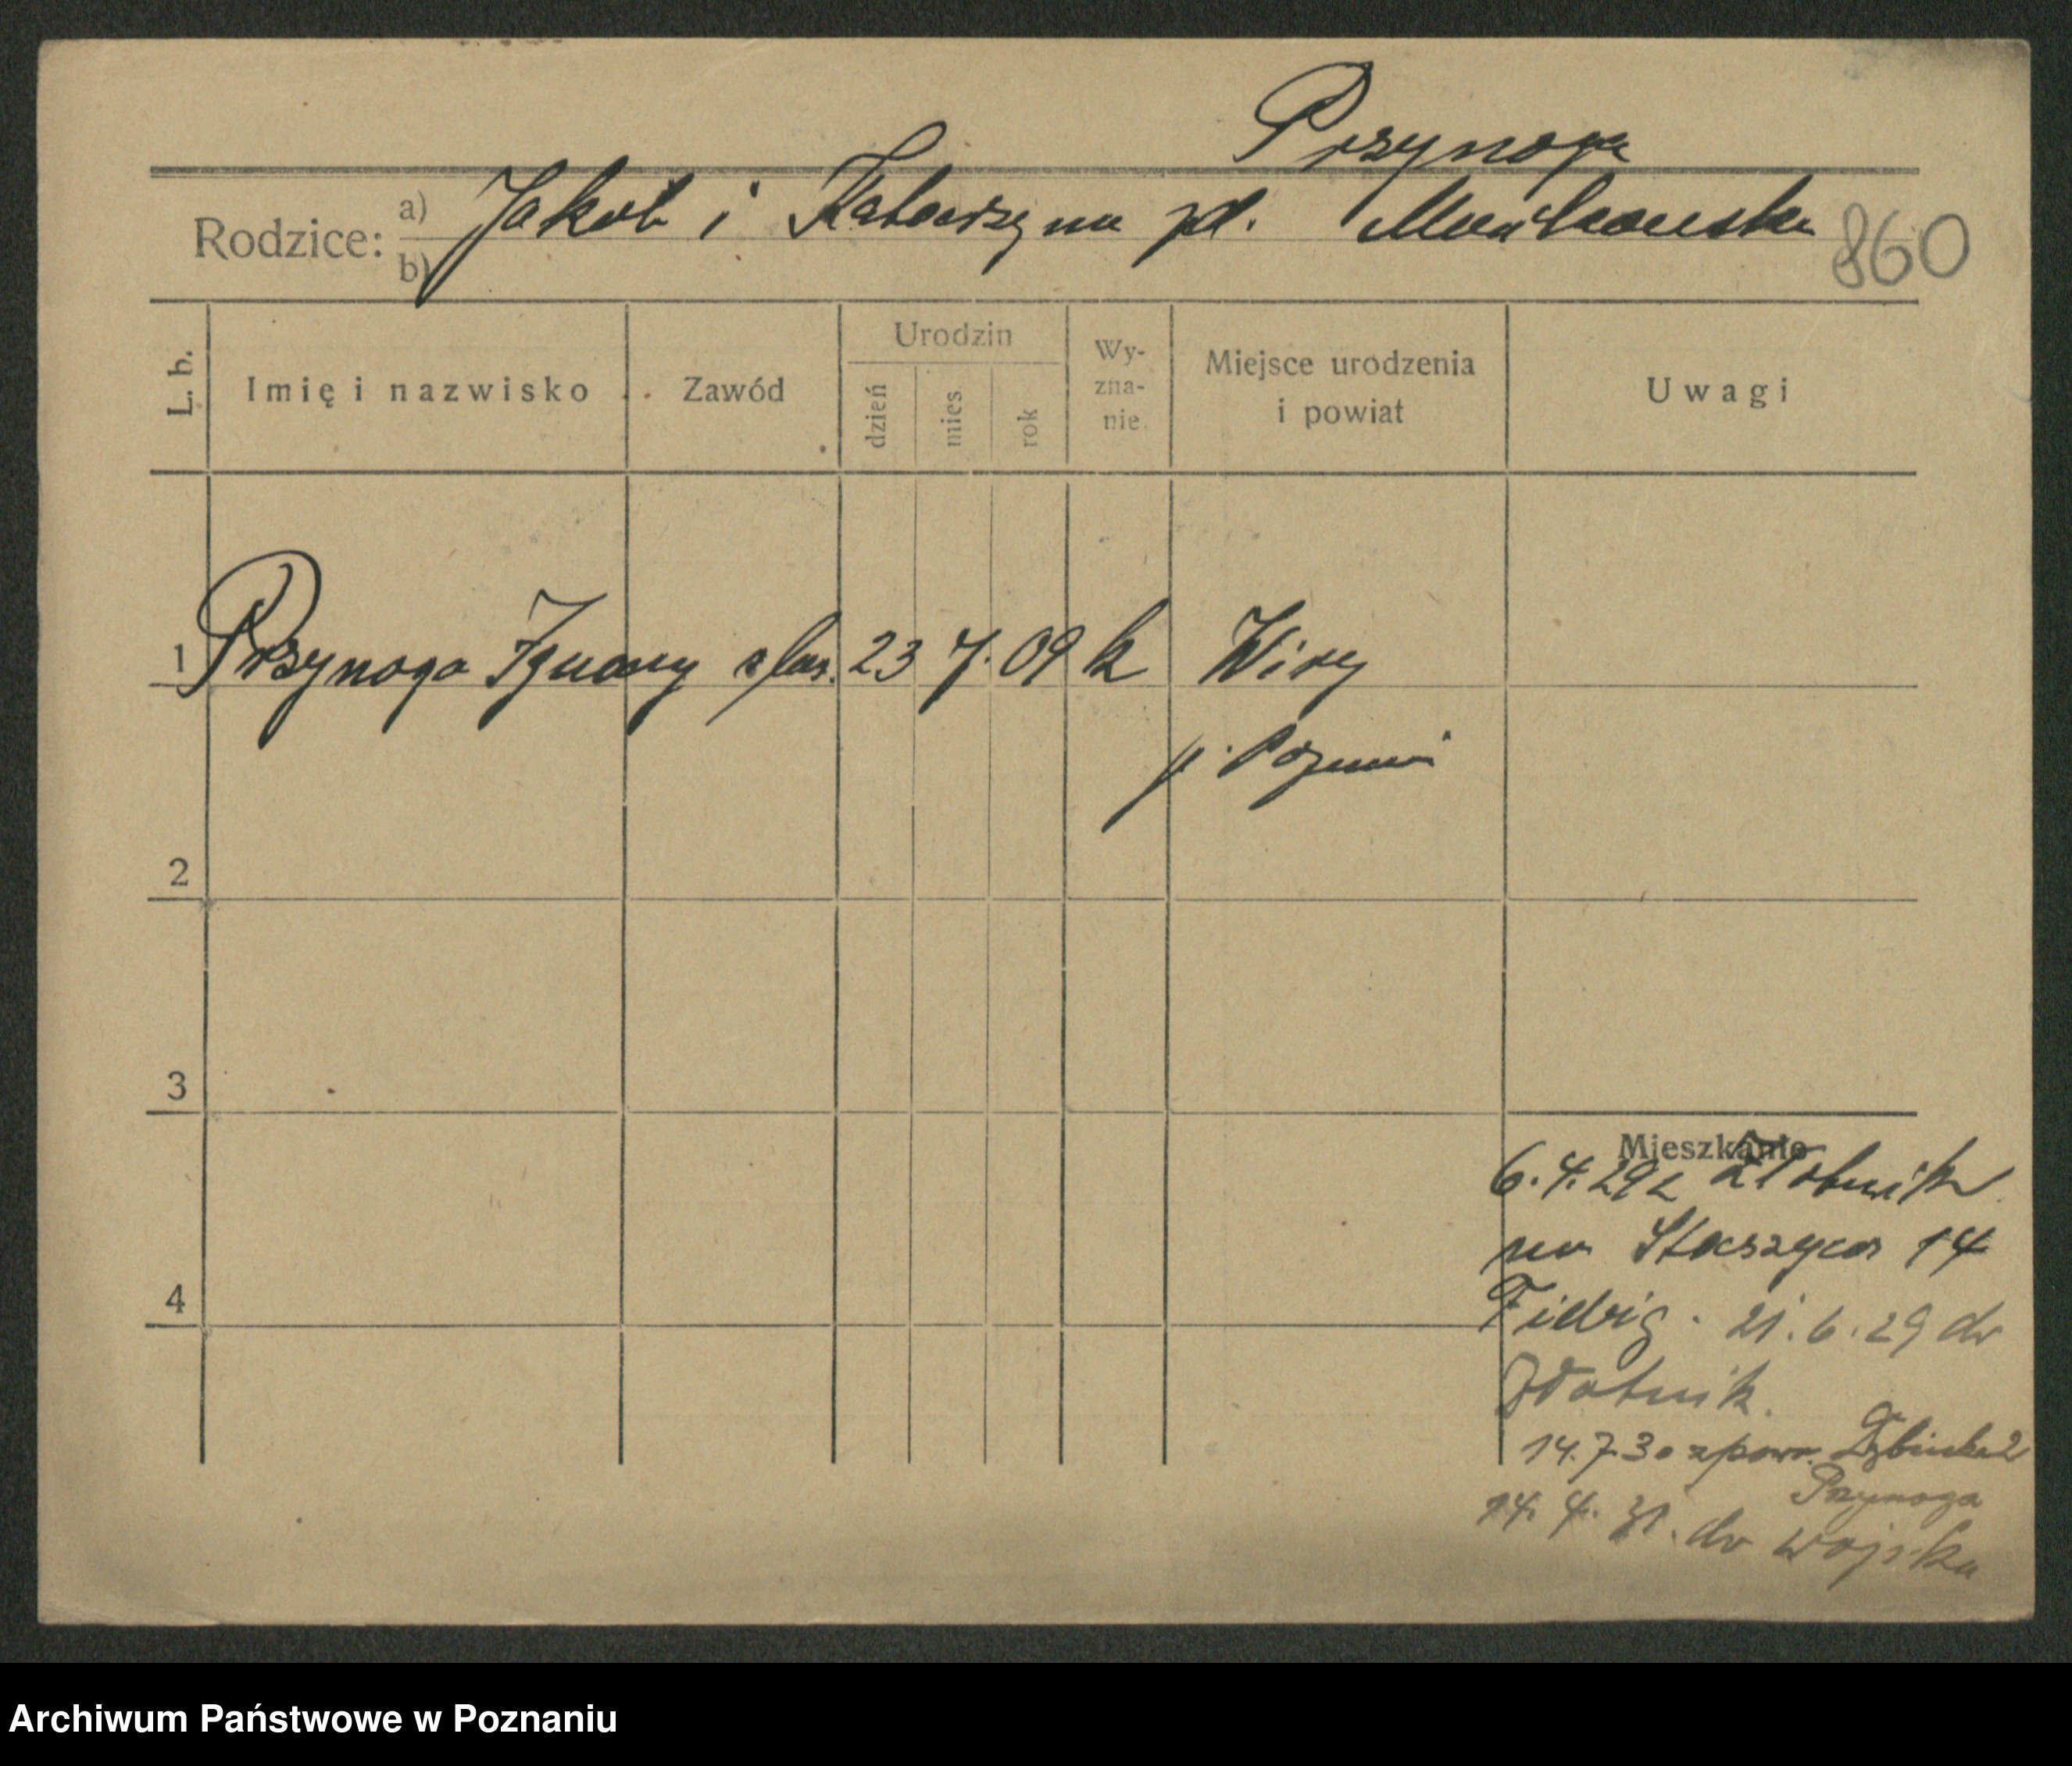 Przynoga
Rodzice: a) Jakób i Katarzyna zd.
b)
860
L. b.
Imię i nazwisko
Zawód
Urodzin
dzień
mies.
rok
Wy-
zna-
nie.
Miejsce urodzenia
i powiat
Uwagi
1 Przynoga Ignacy ślus. 23 7. 09 k Wiry
p. Poznań
2
3
4
Mieszkanie
6.4.29 z Złotnik
na Staszyca 14
Fiebig. 21.6.29 do
Złotnik.
14.7.30 z pow. Dębińska 2
Przynoga
14. 4. 31. do wojska
Archiwum Państwowe w Poznaniu